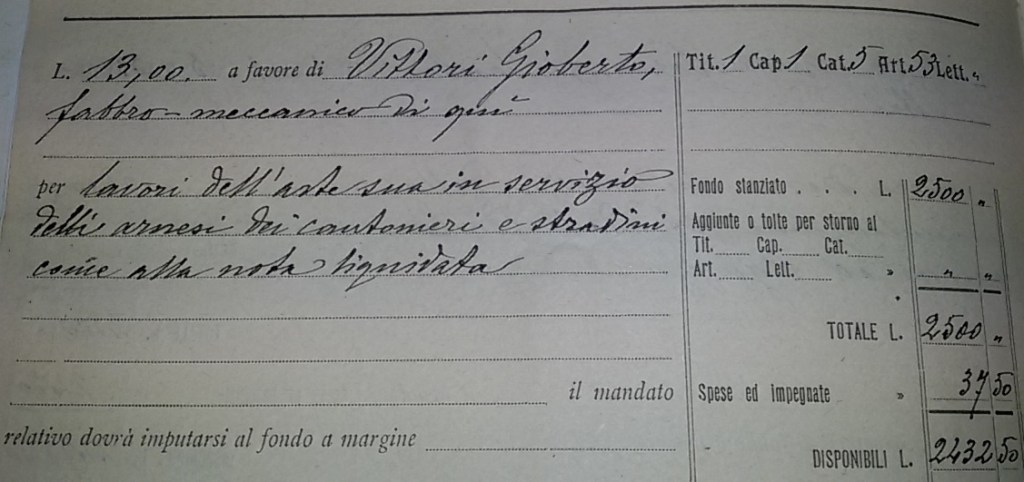 L. 13,00. a favore di Vittori Gioberto,
fabbro-meccanico di quì
per lavori dell'arte sua in servizio
delli arnesi dei cantonieri e stradini
come alla nota liquidata
il mandato
relativo dovrà imputarsi al fondo a margine
Tit. 1 Cap 1 Cat. 5 Art. 53 Lett. "
Fondo stanziato . . . L. 2500 "
Aggiunte o tolte per storno al
Tit. Cap. Cat.
Art. Lett. » " "
TOTALE L. 2500 "
Spese ed impegnate » 37 50
DISPONIBILI L. 2432 50